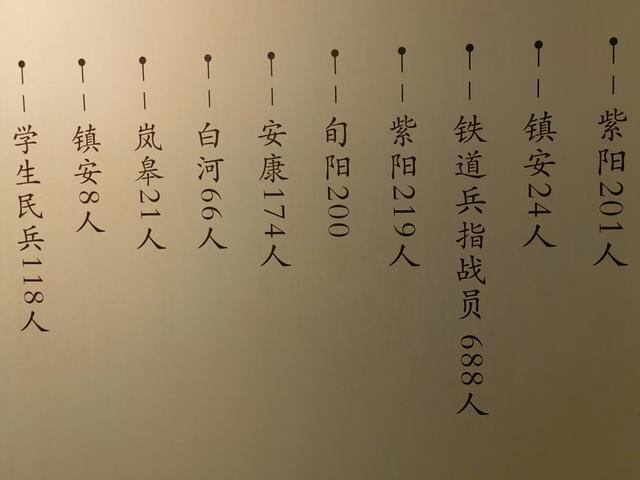 紫阳201人
镇安24人
铁道兵指战员 688人
紫阳219人
旬阳200
安康174人
白河66人
岚皋21人
镇安8人
学生民兵118人